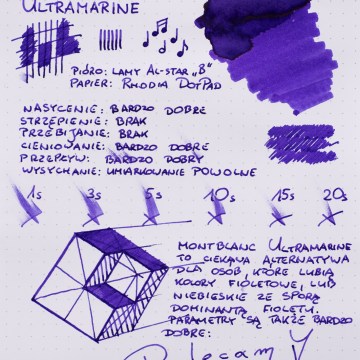 ULTRAMARINE
PIÓRO: LAMY AL-STAR „B"
PAPIER: RHODIA DOTPAD
NASYCENIE: BARDZO DOBRE
STRZĘPIENIE: BRAK
PRZEBIJANIE: BRAK
CIENIOWANIE: BARDZO DOBRE
PRZEPŁYW: BARDZO DOBRY
WYSYCHANIE: UMIARKOWANIE POWOLNE
1s 3s 5s 10s 15s 20s
MONTBLANC ULTRAMARINE
TO CIEKAWA ALTERNATYWA
DLA OSÓB, KTÓRE LUBIĄ
KOLORY FIOLETOWE, LUB
NIEBIESKIE ZE SPORĄ
DOMINANTĄ FIOLETU.
PARAMETRY SĄ TAKŻE BARDZO
DOBRE.
Polecam